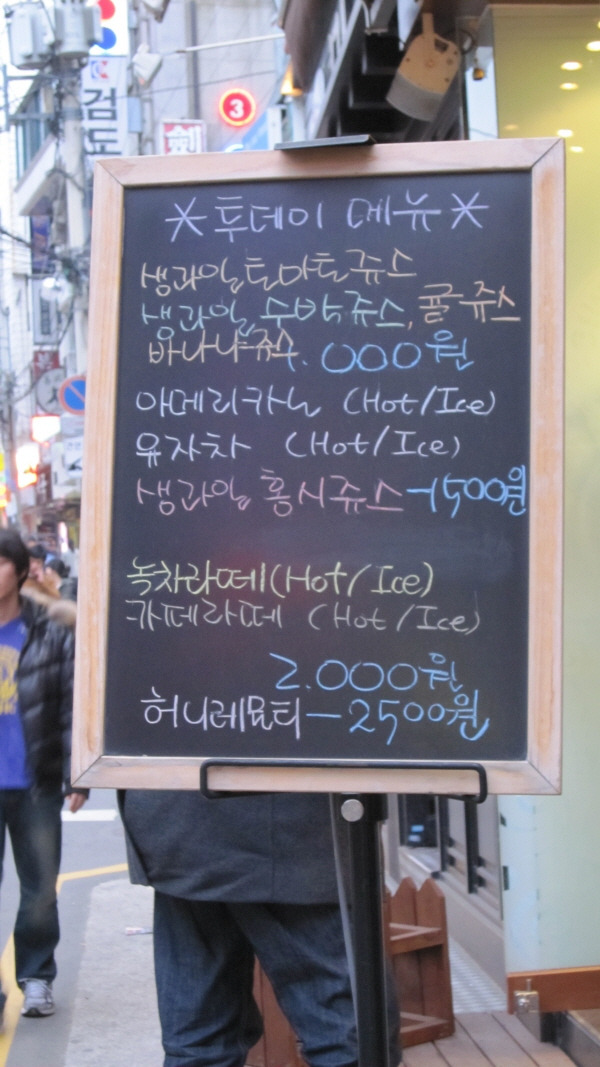 검도
3
*투데이 메뉴*
생과일토마토쥬스
생과일 수박쥬스, 귤쥬스
바나나쥬스 1.000원
아메리카노 (Hot/Ice)
유자차 (Hot/Ice)
생과일 홍시쥬스-1500원
녹차라떼(Hot/Ice)
카페라떼 (Hot/Ice)
2.000원
허니레몬티-2500원